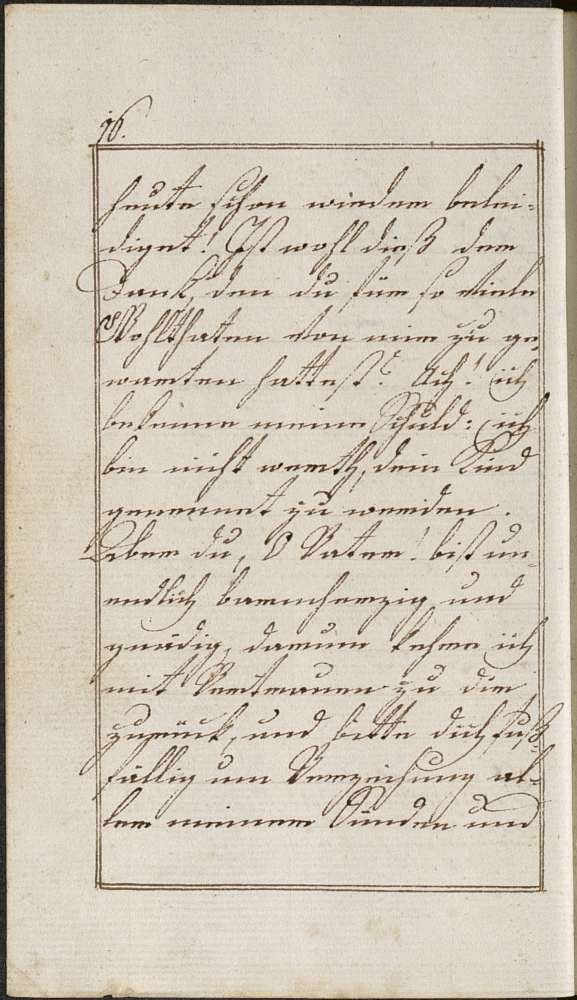 96.
heute schon wieder belei=
diget! Ist wohl dieß der
Dank, den du für so viele
Wohlthaten von mir zu ge=
warten hattest? Ach! ich
bekenne meine Schuld: ich
bin nicht werth, dein Kind
genennet zu werden.
Aber du, O Vater! bist un=
endlich barmherzig und
gnädig, darum kehre ich
mit Vertrauen zu dir
zurück, und bitte dich fuß=
fällig um Verzeihung al=
ler meiner Sünden und